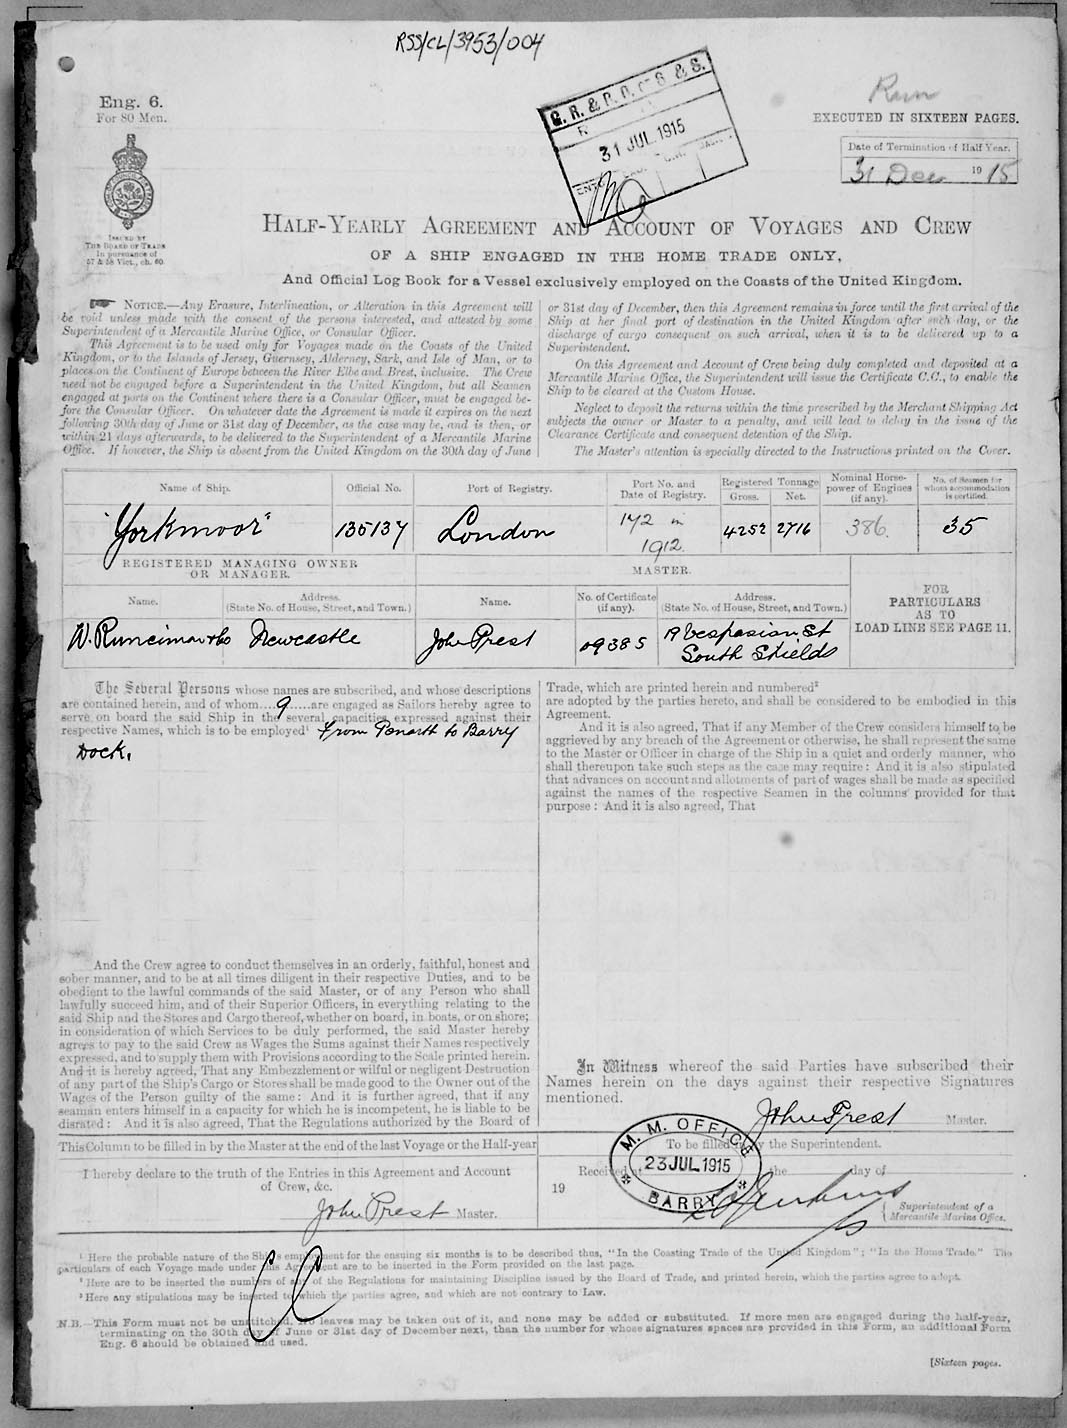 RSS/CL/3953/004
Eng. 6.
For 80 Men.
ISSUED BY
THE BOARD OF TRADE
In pursuance of
57 & 58 Vict., ch. 60.
G. R. & P. O. OF S. & S.
31 JUL 1915
Run
EXECUTED IN SIXTEEN PAGES.
Date of Termination of Half Year.
31 Dec 1915
HALF-YEARLY AGREEMENT AND ACCOUNT OF VOYAGES AND CREW
OF A SHIP ENGAGED IN THE HOME TRADE ONLY,
And Official Log Book for a Vessel exclusively employed on the Coasts of the United Kingdom.
NOTICE.—Any Erasure, Interlineation, or Alteration in this Agreement will
be void unless made with the consent of the persons interested, and attested by some
Superintendent of a Mercantile Marine Office, or Consular Officer.
This Agreement is to be used only for Voyages made on the Coasts of the United
Kingdom, or to the Islands of Jersey, Guernsey, Alderney, Sark, and Isle of Man, or to
places on the Continent of Europe between the River Elbe and Brest, inclusive. The Crew
need not be engaged before a Superintendent in the United Kingdom, but all Seamen
engaged at ports on the Continent where there is a Consular Officer, must be engaged be-
fore the Consular Officer. On whatever date the Agreement is made it expires on the next
following 30th day of June or 31st day of December, as the case may be, and is then, or
within 21 days afterwards, to be delivered to the Superintendent of a Mercantile Marine
Office. If however, the Ship is absent from the United Kingdom on the 30th day of June
or 31st day of December, then this Agreement remains in force until the first arrival of the
Ship at her final port of destination in the United Kingdom after such day, or the
discharge of cargo consequent on such arrival, when it is to be delivered up to a
Superintendent.
On this Agreement and Account of Crew being duly completed and deposited at a
Mercantile Marine Office, the Superintendent will issue the Certificate C.C., to enable the
Ship to be cleared at the Custom House.
Neglect to deposit the returns within the time prescribed by the Merchant Shipping Act
subjects the owner or Master to a penalty, and will lead to delay in the issue of the
Clearance Certificate and consequent detention of the Ship.
The Master's attention is specially directed to the Instructions printed on the Cover.
Name of Ship. Official No. Port of Registry. Port No. and Date of Registry. Registered Tonnage Gross. Net. Nominal Horse-power of Engines (if any). No. of Seamen for whom accommodation is certified.
"Yorkmoor" 135137 London 172 in 1912. 4252 2716 386. 35
REGISTERED MANAGING OWNER OR MANAGER. MASTER.
Name. Address. (State No. of House, Street, and Town.) Name. No. of Certificate (if any). Address. (State No. of House, Street, and Town.)
FOR PARTICULARS AS TO LOAD LINE SEE PAGE 11.
W. Runciman & Co Newcastle John Prest 09385 19 Vespasian St South Shields
The Several Persons whose names are subscribed, and whose descriptions
are contained herein, and of whom....9.....are engaged as Sailors hereby agree to
serve on board the said Ship in the several capacities expressed against their
respective Names, which is to be employed¹ From Penarth to Barry
Dock.
And the Crew agree to conduct themselves in an orderly, faithful, honest and
sober manner, and to be at all times diligent in their respective Duties, and to be
obedient to the lawful commands of the said Master, or of any Person who shall
lawfully succeed him, and of their Superior Officers, in everything relating to the
said Ship and the Stores and Cargo thereof, whether on board, in boats, or on shore;
in consideration of which Services to be duly performed, the said Master hereby
agrees to pay to the said Crew as Wages the Sums against their Names respectively
expressed, and to supply them with Provisions according to the Scale printed herein.
And it is hereby agreed, That any Embezzlement or wilful or negligent Destruction
of any part of the Ship's Cargo or Stores shall be made good to the Owner out of the
Wages of the Person guilty of the same: And it is further agreed, that if any
seaman enters himself in a capacity for which he is incompetent, he is liable to be
disrated: And it is also agreed, That the Regulations authorized by the Board of
Trade, which are printed herein and numbered²
are adopted by the parties hereto, and shall be considered to be embodied in this
Agreement.
And it is also agreed, That if any Member of the Crew considers himself to be
aggrieved by any breach of the Agreement or otherwise, he shall represent the same
to the Master or Officer in charge of the Ship in a quiet and orderly manner, who
shall thereupon take such steps as the case may require: And it is also stipulated
that advances on account and allotments of part of wages shall be made as specified
against the names of the respective Seamen in the columns provided for that
purpose: And it is also agreed, That
In Witness whereof the said Parties have subscribed their
Names herein on the days against their respective Signatures
mentioned.
John Prest Master.
This Column to be filled in by the Master at the end of the last Voyage or the Half-year
I hereby declare to the truth of the Entries in this Agreement and Account
of Crew, &c.
John Prest Master.
To be filled by the Superintendent.
Received at the day of
19
M. M. OFFICE
23 JUL 1915
BARRY
Superintendent of a
Mercantile Marine Office.
CC
¹ Here the probable nature of the Ship's employment for the ensuing six months is to be described thus, "In the Coasting Trade of the United Kingdom"; "In the Home Trade." The
particulars of each Voyage made under this Agreement are to be inserted in the Form provided on the last page.
² Here are to be inserted the numbers of any of the Regulations for maintaining Discipline issued by the Board of Trade, and printed herein, which the parties agree to adopt.
³ Here any stipulations may be inserted to which the parties agree, and which are not contrary to Law.
N.B.—This Form must not be unstitched. No leaves may be taken out of it, and none may be added or substituted. If more men are engaged during the half-year,
terminating on the 30th day of June or 31st day of December next, than the number for whose signatures spaces are provided in this Form, an additional Form
Eng. 6 should be obtained and used.
[Sixteen pages.